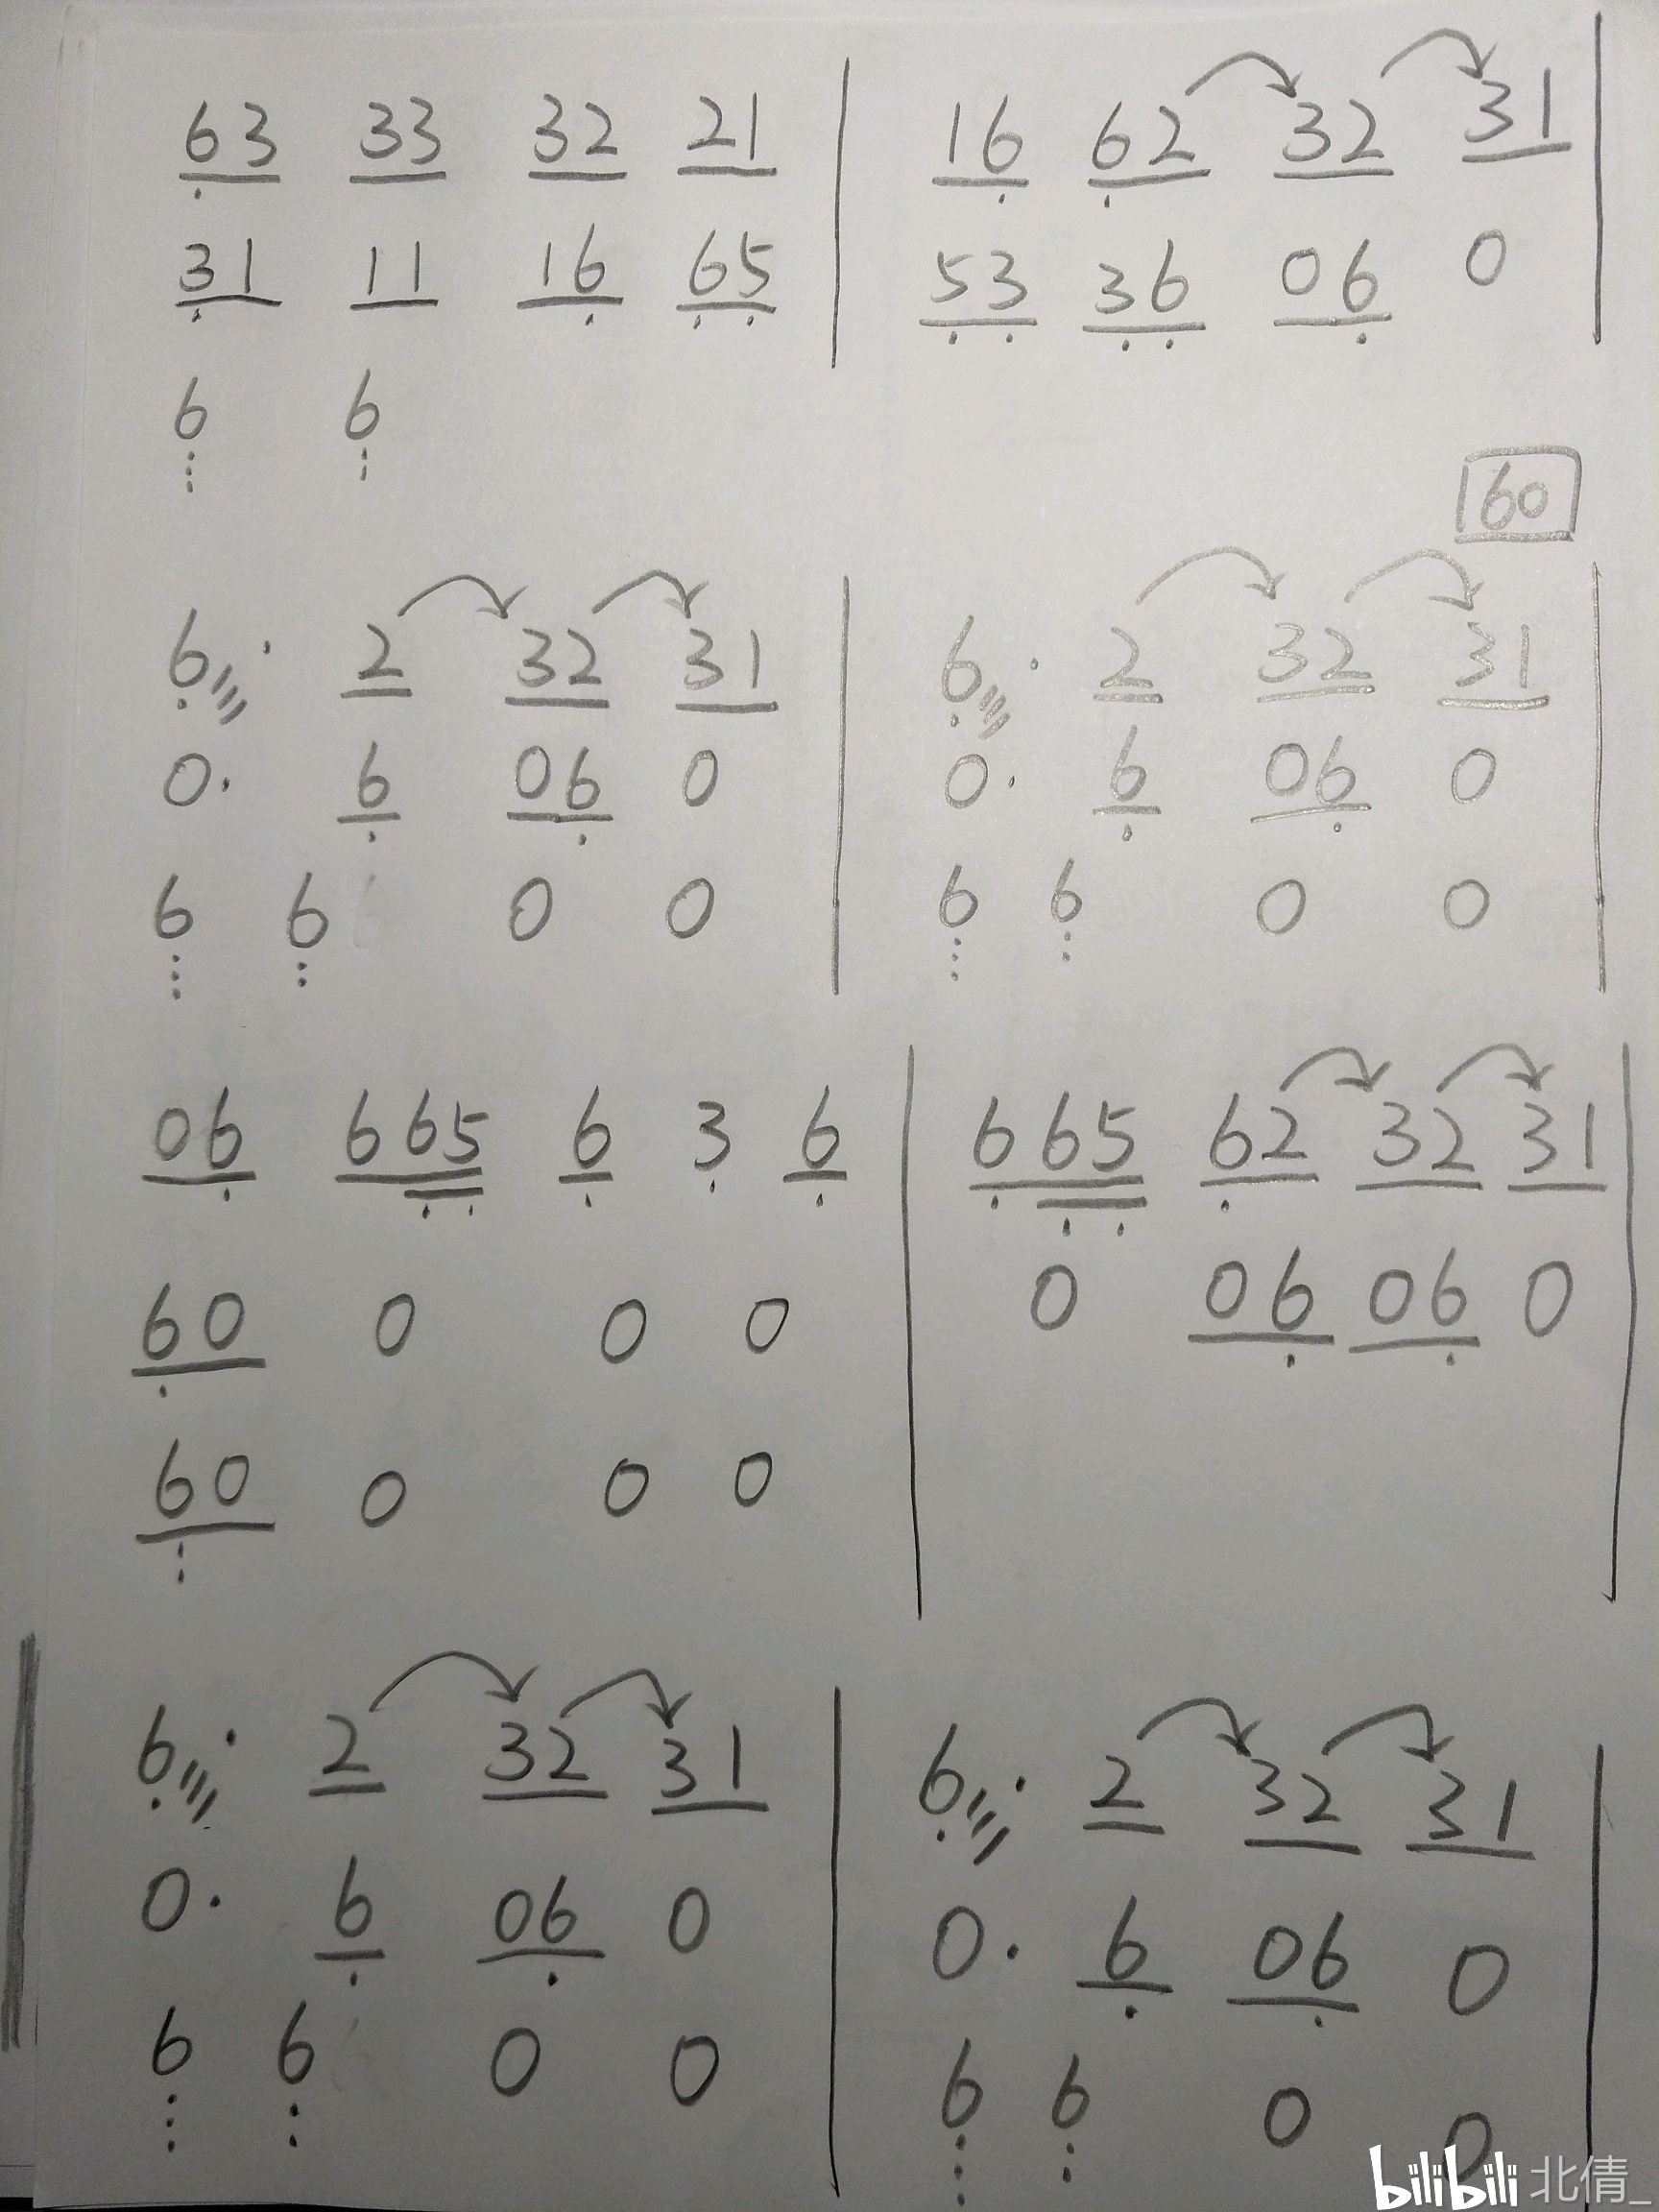 63 33 32 21 | 16 62 32 31 |
31 11 16 65 | 53 36 06 0 |
6 6
60
6 · 2 32 31 | 6 · 2 32 31 |
0· 6 06 0 | 0· 6 06 0 |
6 6 0 0 | 6 6 0 0 |
06 665 6 3 6 | 665 62 32 31 |
60 0 0 0 | 0 06 06 0 |
60 0 0 0
6 · 2 32 31 | 6 · 2 32 31 |
0· 6 06 0 | 0· 6 06 0 |
6 6 0 0 | 6 6 0 0
bilibili 北倩_